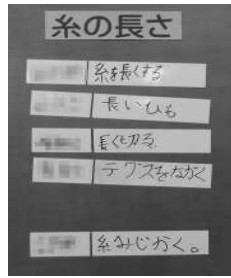 糸の長さ
糸を長くする
長いひも
長く切る。
テグスをながく
糸みじかく。